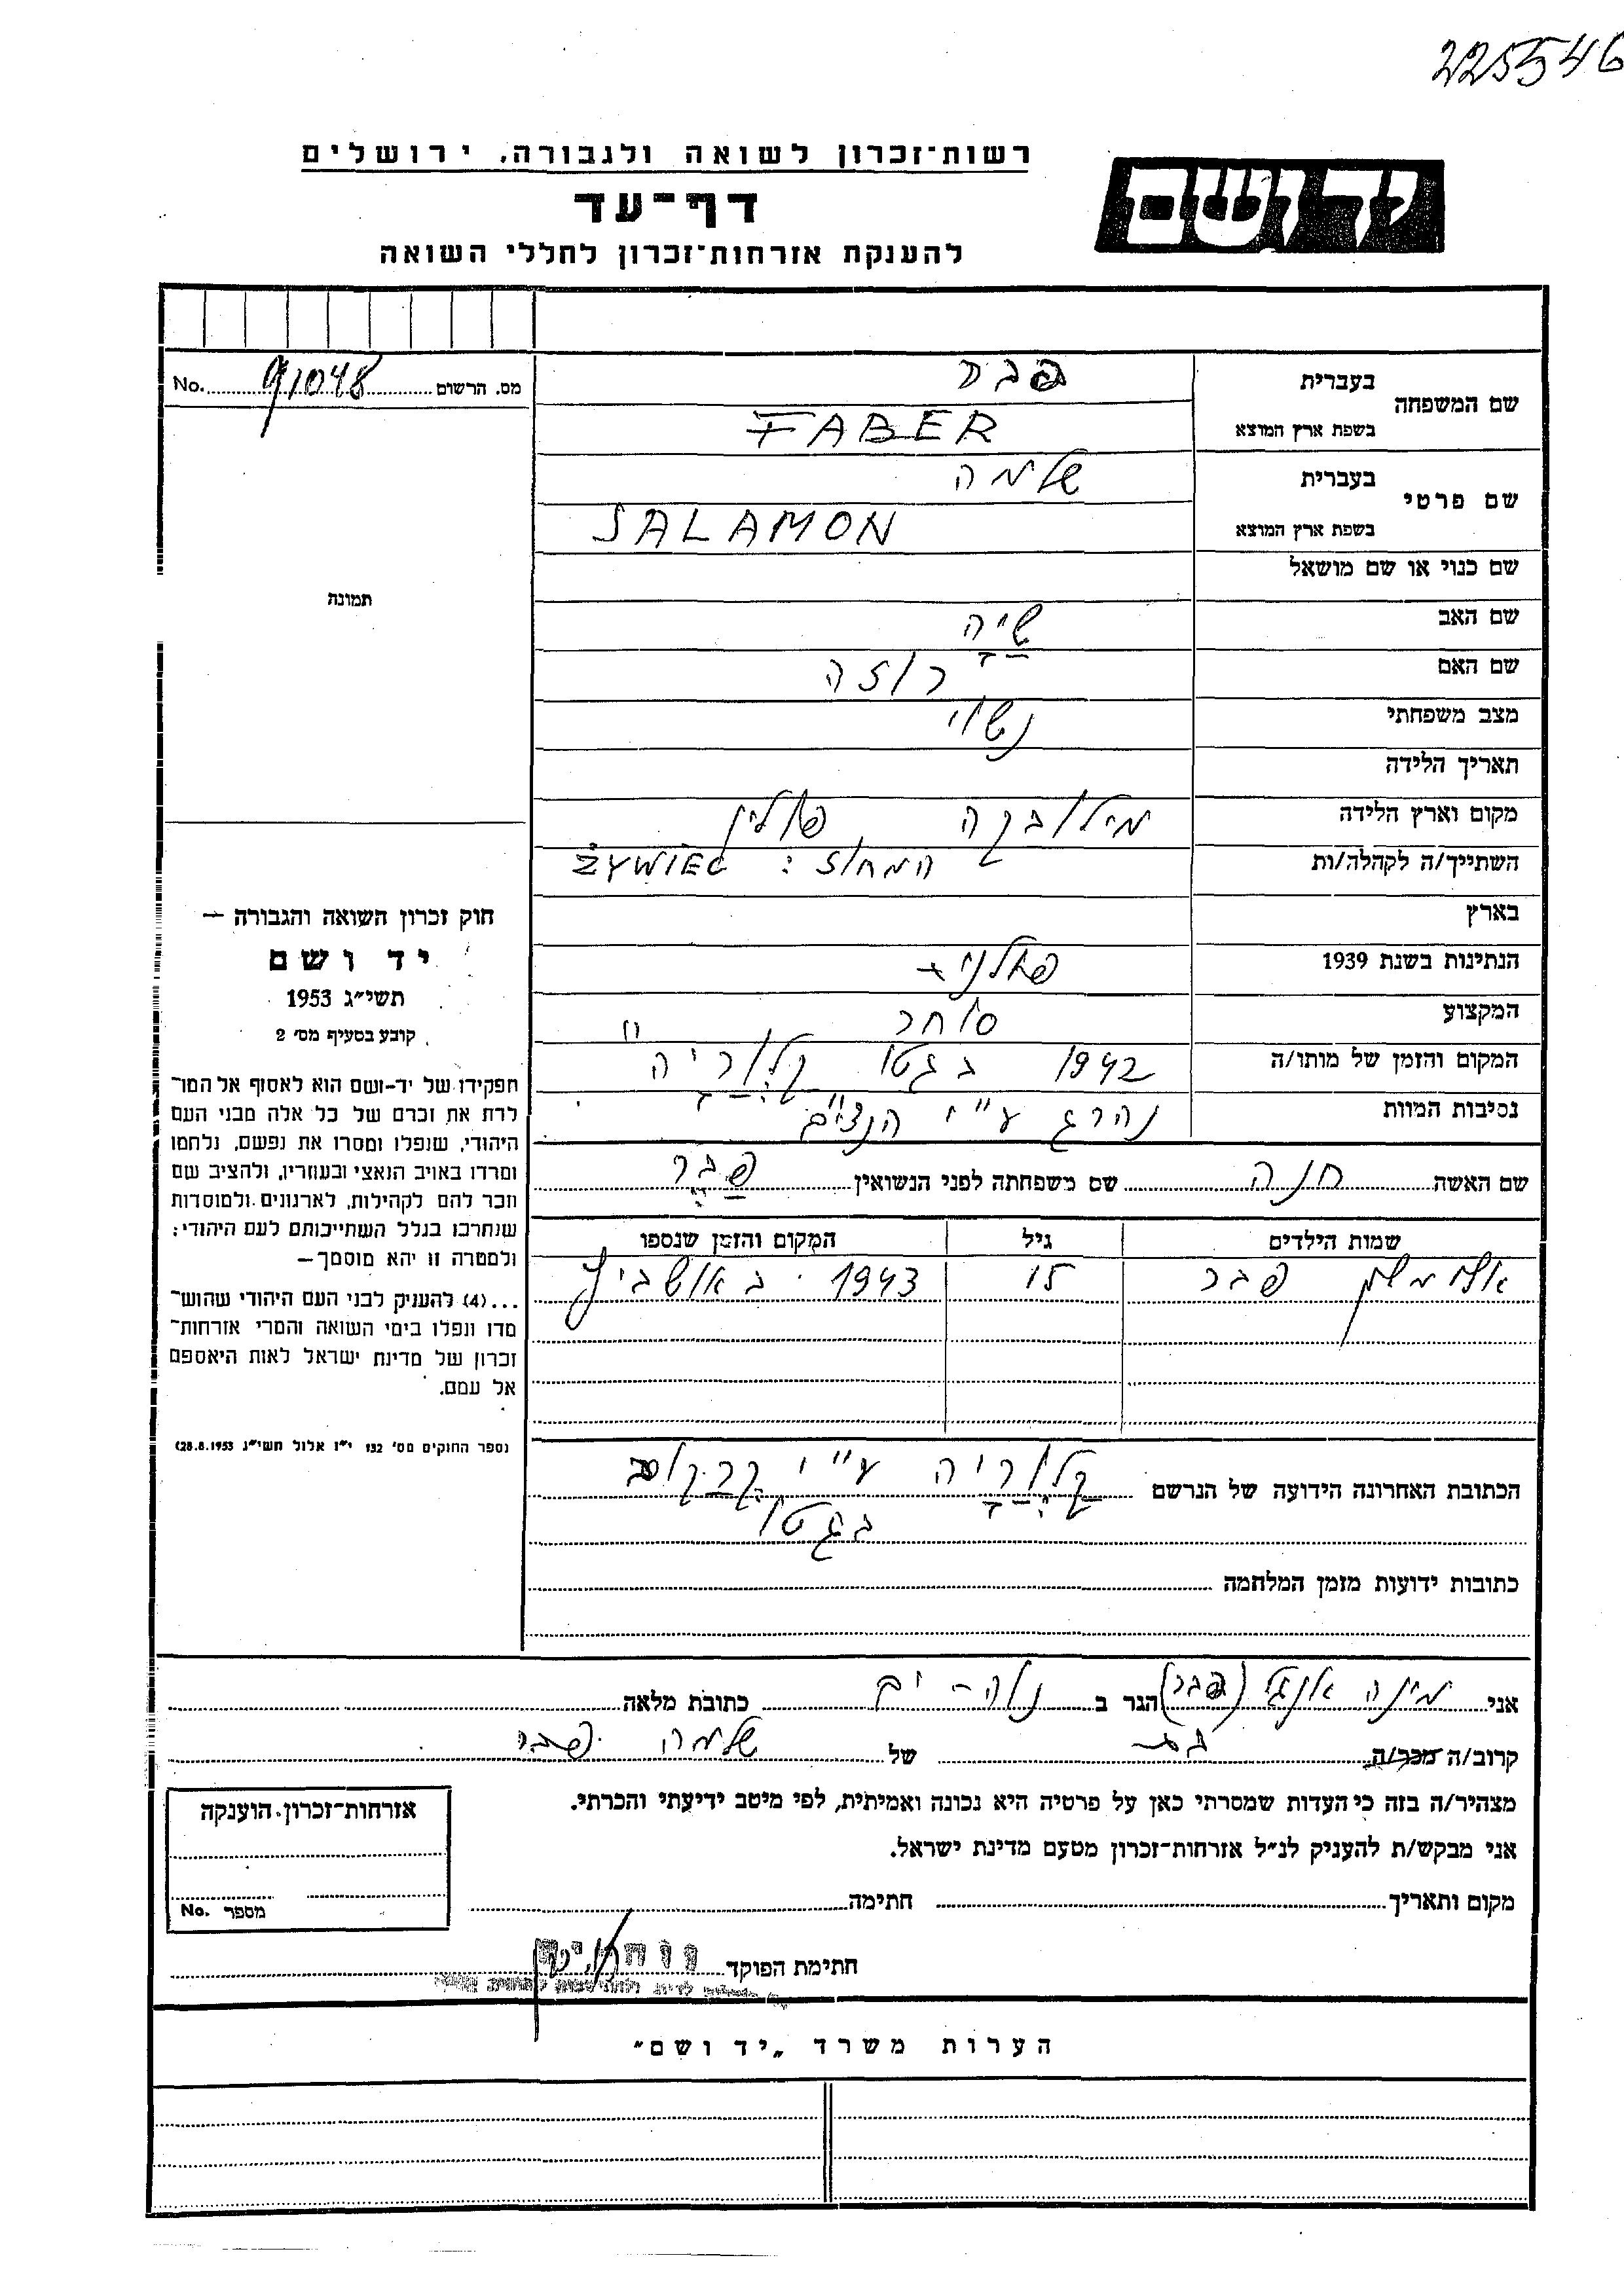 225546
רשות-זכרון לשואה ולגבורה, ירושלים
יד ושם
דף-עד
להענקת אזרחות-זכרון לחללי השואה
מס. הרשום 91048 No.
שם המשפחה בעברית פבר
בשפת ארץ המוצא FABER
שם פרטי בעברית שלמה
בשפת ארץ המוצא SALAMON
שם כנוי או שם מושאל
תמונה
שם האב שיה
שם האם רוזה
מצב משפחתי נשוי
תאריך הלידה
מקום וארץ הלידה מילובקה פולין
השתייך/ה לקהלה/ות המחוז: ŻYWIEC
בארץ
הנתינות בשנת 1939 פולני
המקצוע סוחר
המקום והזמן של מותו/ה 1942 בגטו קלוריה
נסיבות המוות נהרג ע"י הנצים
שם האשה חנה שם משפחתה לפני הנשואין פבר
שמות הילדים גיל המקום והזמן שנספו
פבר 15 1943 באושביץ
הכתובת האחרונה הידועה של הנרשם קלוריה ע"י קרקוב
בגטו
כתובות ידועות מזמן המלחמה
חוק זכרון השואה והגבורה —
יד ושם
תשי"ג 1953
קובע בסעיף מס' 2
תפקידו של יד-ושם הוא לאסוף אל המו־
לדת את זכרם של כל אלה מבני העם
היהודי, שנפלו ומסרו את נפשם, נלחמו
ומרדו באויב הנאצי ובעוזריו, ולהציב שם
וזכר להם לקהילות, לארגונים ולמוסדות
שנחרבו בגלל השתייכותם לעם היהודי;
ולמטרה זו יהא מוסמך —
...(4) להעניק לבני העם היהודי שהוש־
מדו ונפלו בימי השואה והמרי אזרחות־
זכרון של מדינת ישראל לאות היאספם
אל עמם.
(ספר החוקים מס' 132 י"ז אלול תשי"ג 28.8.1953)
אני מינה אנגל (פבר) הגר ב נוה-ים כתובת מלאה
קרוב/ה מכר/ה בת של שלמה פבר
מצהיר/ה בזה כי העדות שמסרתי כאן על פרטיה היא נכונה ואמיתית, לפי מיטב ידיעתי והכרתי.
אני מבקש/ת להעניק לנ"ל אזרחות-זכרון מטעם מדינת ישראל.
מקום ותאריך חתימה
חתימת הפוקד
אזרחות-זכרון הוענקה
מספר No.
הערות משרד „יד ושם"